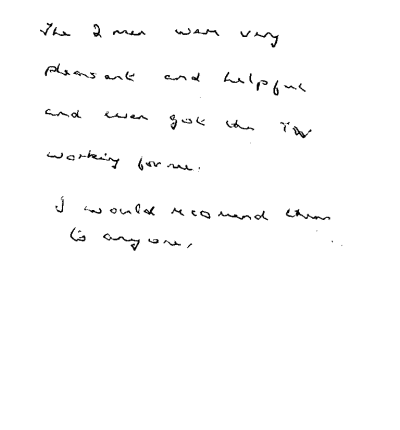 The 2 men were very
pleasant and helpful
and even got the TV
working for me.
I would recomend them
to anyone,